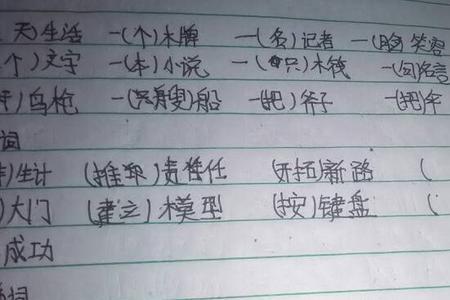 天)生活 一(个)木牌 一(名)记者 一(脸)笑容
个)文字 一(本)小说 一(只)木钱 一(句)名言
)鸟枪 一(艘)船 一(把)斧子 一(把)伞
词
)生计 (推卸)责任 (开拓)新路 (
)大门 (建立)模型 (按)键盘 (
成功
词